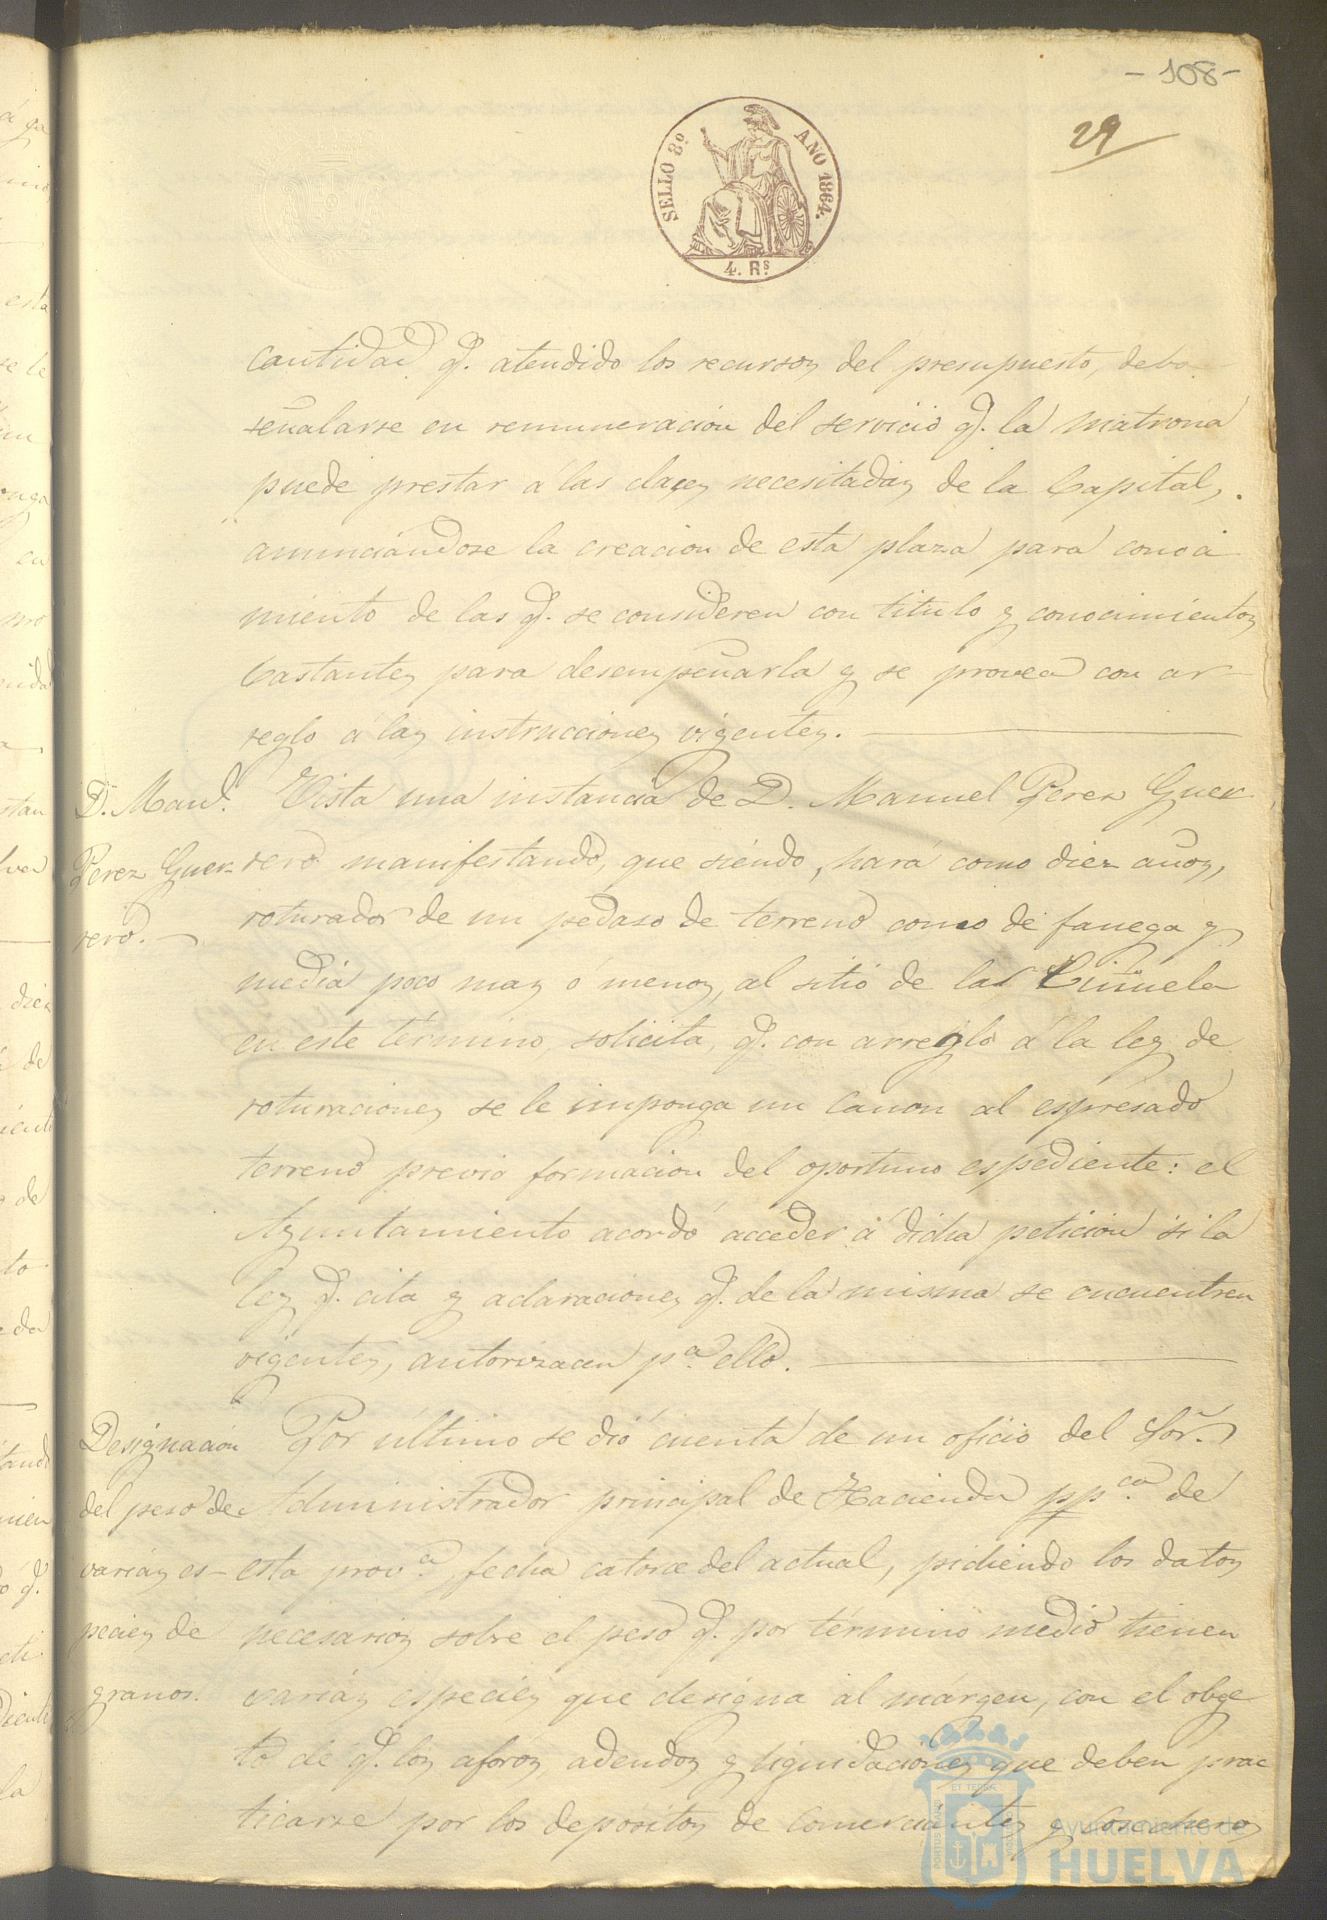 - 108 -
29
SELLO 8º AÑO 1864.
4. Rs.
cantidad q. atendido los recursos del presupuesto, deba
señalarse en remuneracion del servicio q. la matrona
puede prestar á las clases necesitadas de la Capital,
anunciándose la creacion de esta plaza para conoci
miento de las q. se consideren con titulo y conocimientos
bastantes para desempeñarla y se provea con ar-
reglo á las instrucciones vigentes.
D. Manl.
Perez Guer-
rero.
Vista una instancia de D. Manuel Perez Guer
rero manifestando, que siendo, hará como diez años,
roturador de un pedaso de terreno como de fanega y
media poco mas ó menos, al sitio de las
en este término, solicita, q. con arreglo á la ley de
roturaciones se le imponga un canon al espresado
terreno previo formacion del oportuno espediente: el
Ayuntamiento acordó acceder á dicha peticion si la
ley q. cita y aclaraciones q. de la misma se encuentren
vigentes, autorizacen pa. ello.
Designacion
del peso de
varias es-
pecies de
granos.
Por último se dió cuenta de un oficio del Sor.
Administrador principal de Hacienda ppca. de
esta prova. fecha catorce del actual, pidiendo los datos
necesarios sobre el peso q. por término medio tienen
varias especies que designa al márgen, con el obge
to de q. los aforos, adeudos y liquidaciones que deben prac
ticarse por los depósitos de comerciantes y cosecheros
ET TERRÆ
Ayuntamiento de
HUELVA